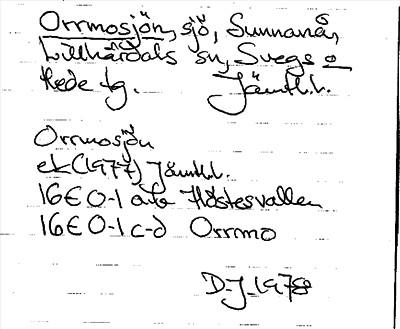 Orrmosjön, sjö, Sunnanå,
Lillhärdals sn, Svegs o
Hede tg. Jämtl.l.
Orrmosjön
ek (1977) Jämtl.l.
16E 0-1 a-b Höstesvallen
16E 0-1 c-d Orrmo
D-J 1978